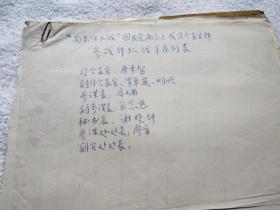 "南京保卫战"国民党南京卫戍司令长官部
参战部队战斗序列表
司令长官：唐生智
副司令长官：罗卓英、刘兴
参谋长：周斓
副参谋长：佘念慈
秘书长：谢晓钟
参谋处处长：廖肯
副官处处长：